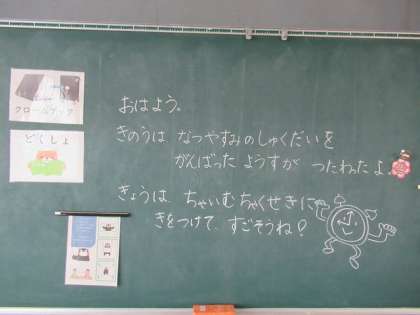 クロームブック
どくしょ
おはよう。
きのうは なつやすみのしゅくだいを
がんばった ようすが つたわったよ。
きょうは ちゃいむちゃくせきに
きをつけて、すごそうね!